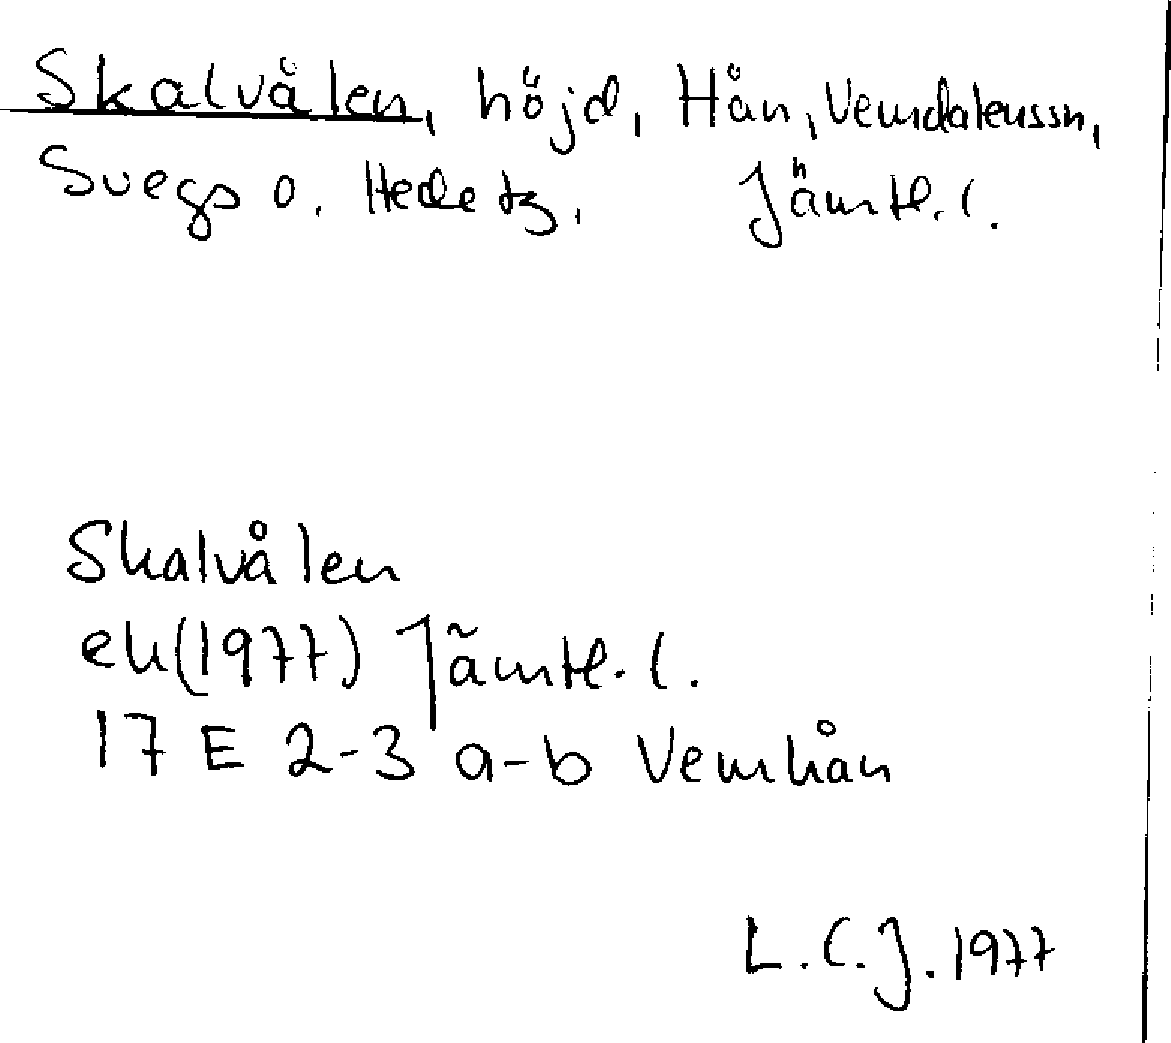 Skalvålen, höjd, Hån, Vemdalenssn,
Svegs o. Hede tg, Jämtl. l.
Skalvålen
ek(1977) Jämtl. l.
17 E 2-3 a-b Vemhån
L.C.J. 1977